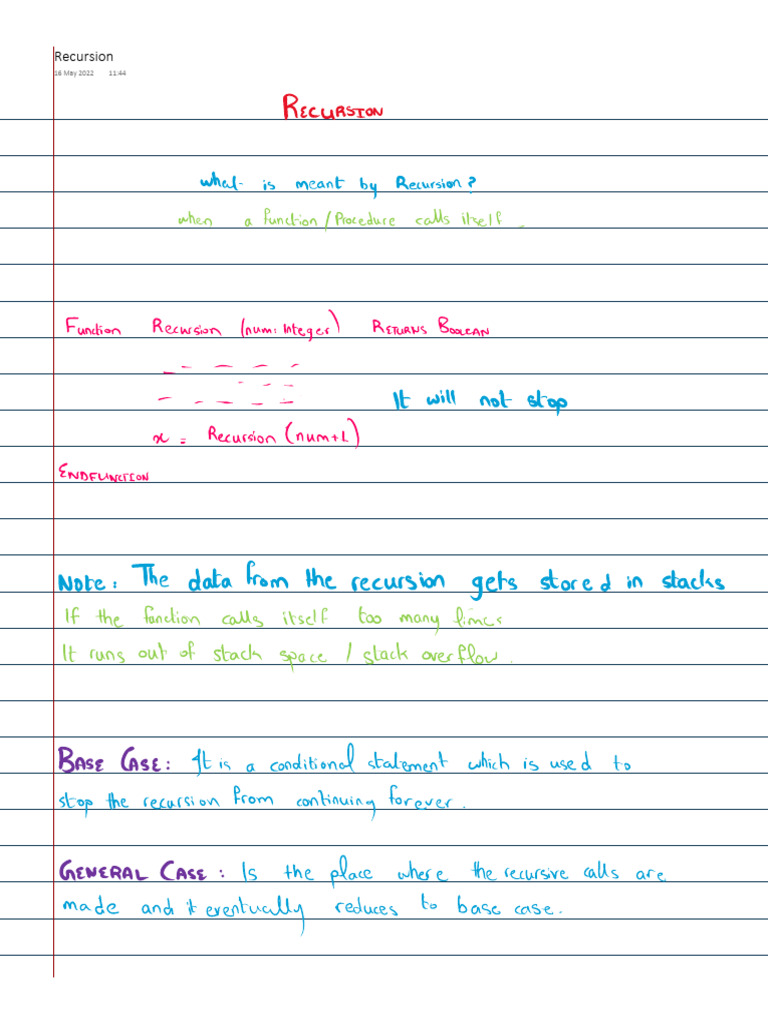 Recursion
16 May 2022 11:44
RECURSION
What is meant by Recursion?
when a function/Procedure calls itself
Function Recursion (num: Integer) RETURNS BOOLEAN
It will not stop
x = Recursion (num+1)
ENDFUNCTION
Note: The data from the recursion gets stored in stacks
If the function calls itself too many times
It runs out of stack space / stack overflow.
BASE CASE: It is a conditional statement which is used to
stop the recursion from continuing forever.
GENERAL CASE: Is the place where the recursive calls are
made and it eventually reduces to base case.